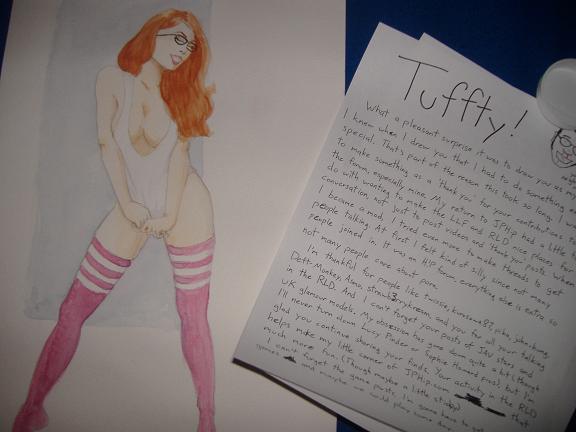 Tuffty!
What a pleasant surprise it was to draw you as my
I knew when I drew you that I had to do something ex
special. That's part of the reason this took so long. I wan
to make something as a 'thank you' for your contributions to
the forum, especially mine. My return to JPHiP had a little to
do with wanting to make the LLF and RLD nice places for
conversation, not just to post videos and 'thank you' posts. When
I became a mod, I tried even more to make threads to get
people talking. At first I felt kind of silly, since not many
people joined in. It was an H!P forum, everything else is extra so
not many people care about porn.
I'm thankful for people like kurosawa85, johnbung,
Dett-Monkey, and you for all your talking
in the RLD. And I can't forget your posts of JAV stars and
UK glamour models. My obsession has gone down quite a bit (though
I'll never turn down Lucy Pinder or Sophie Howard pics), but I'm
glad you continue sharing your finds. Your activity in the RLD
helps make my little corner of JPHip.com that
much more fun. (Though maybe a little sticky)
I can't forget the game posts. I'm gonna have to get
games and maybe we could play some